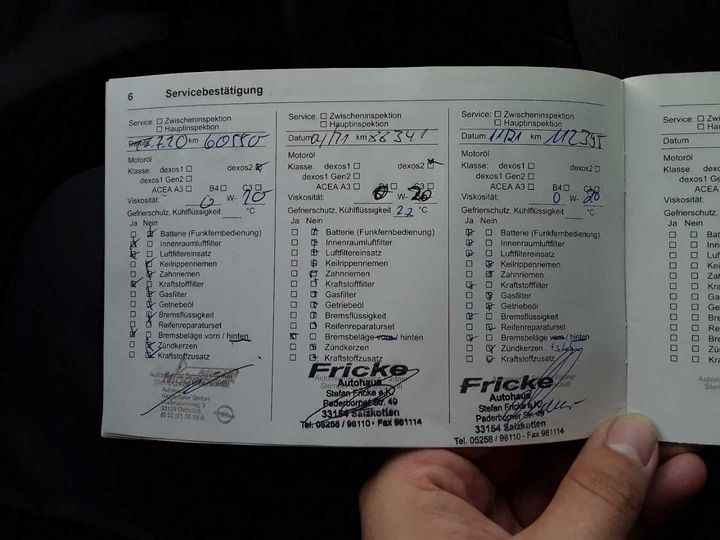 6 Servicebestätigung
Service: ☐ Zwischeninspektion
☐ Hauptinspektion
7.20 km 60550
Motoröl
Klasse: dexos1 ☐ dexos2 ☒
dexos1 Gen2 ☐
ACEA A3 ☐ B4 ☐ C3 ☐
Viskosität: 0 W- 20
Gefrierschutz. Kühlflüssigkeit ___ °C
Ja Nein
Batterie (Funkfernbedienung)
Innenraumluftfilter
Luftfiltereinsatz
Keilrippenriemen
Zahnriemen
Kraftstofffilter
Gasfilter
Getriebeöl
Bremsflüssigkeit
Reifenreparaturset
Bremsbeläge vorn / hinten
Zündkerzen
Kraftstoffzusatz
Service: ☐ Zwischeninspektion
☐ Hauptinspektion
Datum 04/21 km 88341
Motoröl
Klasse: dexos1 ☐ dexos2 ☒
dexos1 Gen2 ☐
ACEA A3 ☐ B4 ☐ C3 ☐
Viskosität: 0 W- 20
Gefrierschutz. Kühlflüssigkeit 22 °C
Ja Nein
Batterie (Funkfernbedienung)
Innenraumluftfilter
Luftfiltereinsatz
Keilrippenriemen
Zahnriemen
Kraftstofffilter
Gasfilter
Getriebeöl
Bremsflüssigkeit
Reifenreparaturset
Bremsbeläge vorn / hinten
Zündkerzen
Kraftstoffzusatz
Fricke
Autohaus
Stefan Fricke e.K.
Paderborner Str. 49
33154 Salzkotten
Tel. 05258 / 98110 · Fax 981114
Service: ☐ Zwischeninspektion
☐ Hauptinspektion
Datum 11/21 km 112395
Motoröl
Klasse: dexos1 ☐ dexos2 ☐
dexos1 Gen2 ☐
ACEA A3 ☐ B4 ☐ C3 ☐
Viskosität: 0 W- 20
Gefrierschutz. Kühlflüssigkeit ___ °C
Ja Nein
Batterie (Funkfernbedienung)
Innenraumluftfilter
Luftfiltereinsatz
Keilrippenriemen
Zahnriemen
Kraftstofffilter
Gasfilter
Getriebeöl
Bremsflüssigkeit
Reifenreparaturset
Bremsbeläge vorn / hinten
Zündkerzen
Kraftstoffzusatz
Fricke
Autohaus
Stefan Fricke e.K.
Paderborner Str. 49
33154 Salzkotten
Tel. 05258 / 98110 · Fax 981114
Service: ☐
☐
Datum
Motoröl
Klasse: de
Viskosität:
Gefrierschutz
Ja Nein
Ba
Inn
Luf
Keil
Zah
Kraf
Gas
Getri
Brem
Reife
Brem
Zünd
Kraft